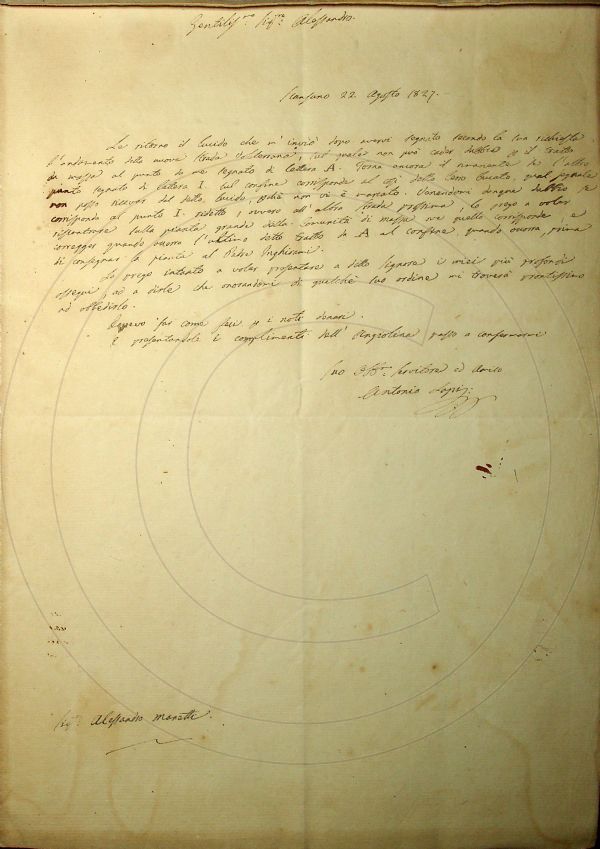 Gentilis.mo Sig.re Alessandro.
Scansano 22. Agosto 1827.
Le ritorno il lucido che m' inviò dopo avervi segnato secondo la sua richiesta
l'andamento della nuova strada sul quale non può cader dubbio p il tratto
da Massa al punto da me segnato di lettera A. Torna ancora il rimanente da l'altro
punto segnato di lettera I. sul confine corrisponde al così detto Ceno bucato, qual segnale
non posso ricavar dal detto lucido, perchè non vi è marcato. Venendomi dunque dubbio se
corrisponda al punto I. ridetto, ovvero all' altro prossimo, la prego a voler
riscontrare sulla pianta grande della Comunità di Massa ove quello corrisponde, e
correggere quando occorra l'ultimo detto tratto da A al confine, quando occorra, prima
di consegnar la pianta al Padre Inghirami.
La prego intanto a voler presentare a detto Signore i miei più profondi
ossequi, ed a dirle che onorandomi di qualche suo ordine mi troverà prontissimo
ad obbedirlo.
far come feci p i noti denari.
E presentandole i complimenti dell' Angiolina passo a confermarmi
Suo Servitore ed Amico
Antonio
Sig.r Alessandro Manetti.